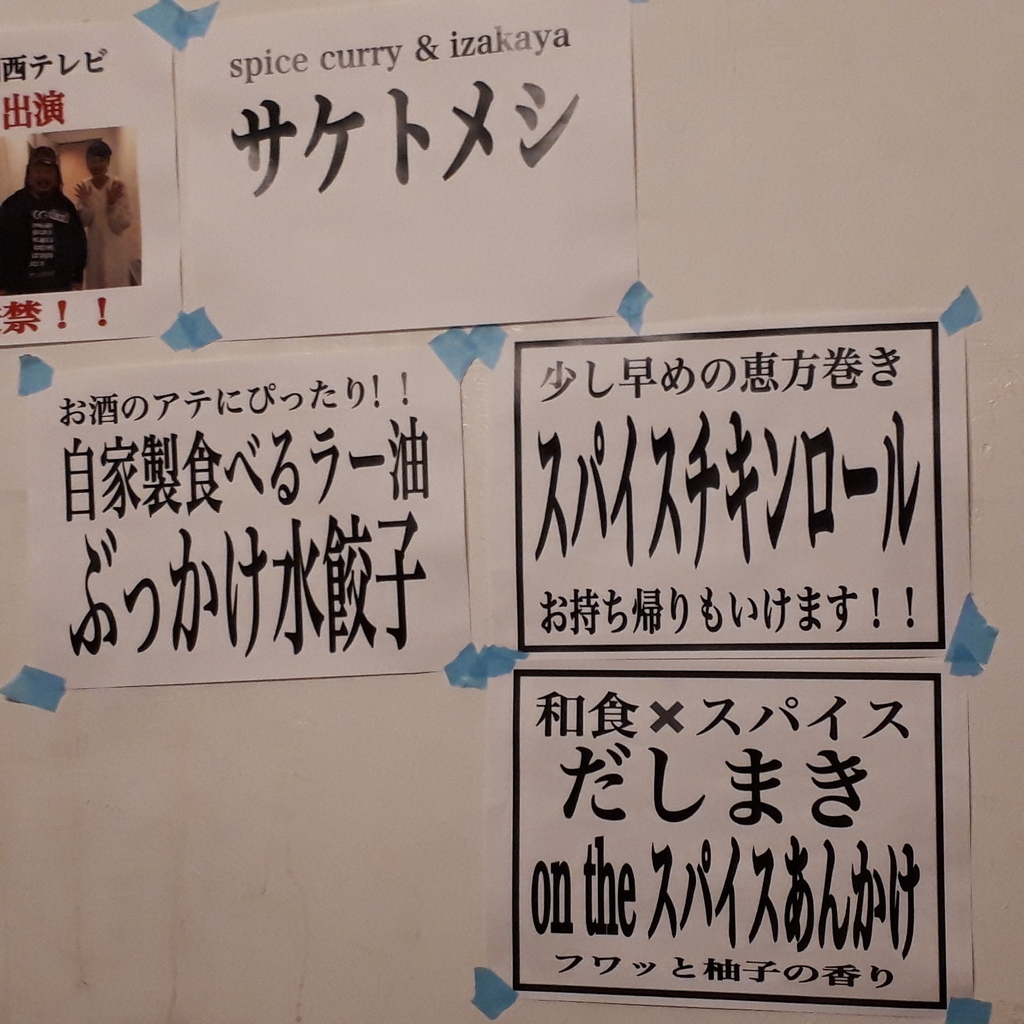 西テレビ
出演
禁！！
spice curry & izakaya
サケトメシ
お酒のアテにぴったり！！
自家製食べるラー油
ぶっかけ水餃子
少し早めの恵方巻き
スパイスチキンロール
お持ち帰りもいけます！！
和食✖スパイス
だしまき
on the スパイスあんかけ
フワッと柚子の香り